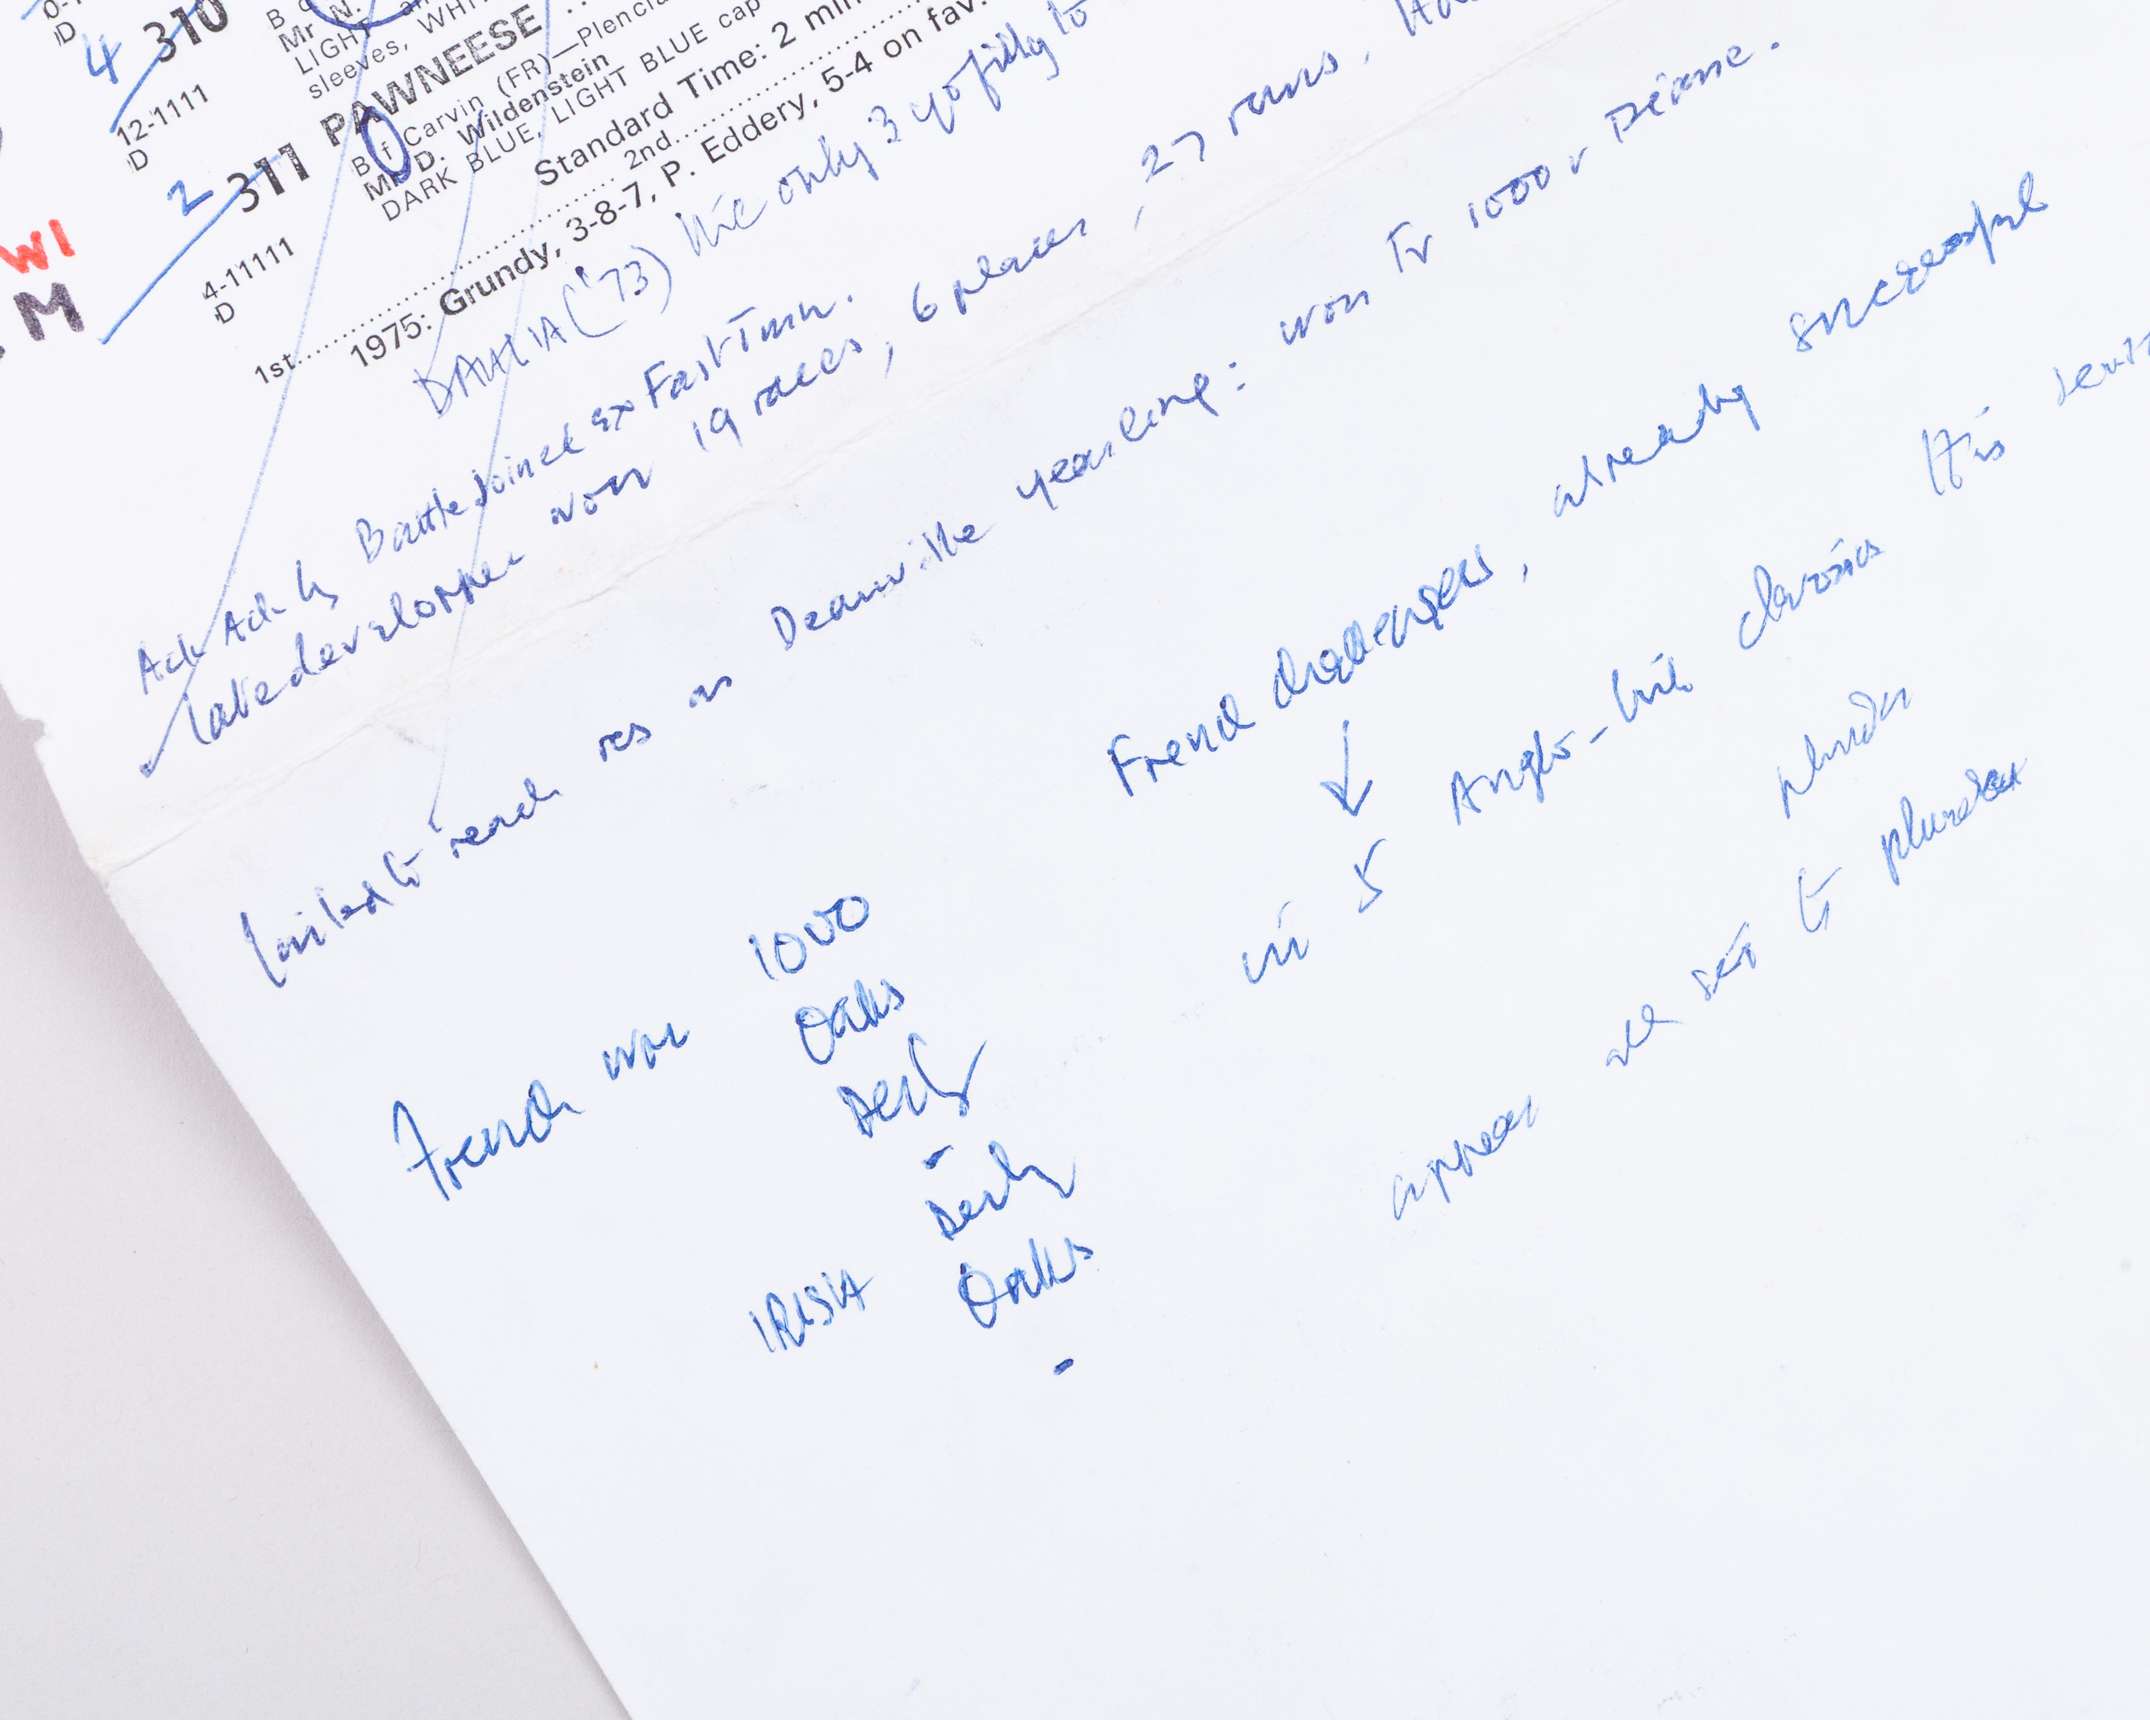 4 310
Mr N.
LIGHT
sleeves, WHI
12-1111
D
2 311 PAWNEESE
B f Carvin (FR)—Plencia
Mr D. Wildenstein
DARK BLUE, LIGHT BLUE cap
4-11111
D
Standard Time: 2 min
1st 2nd
1975: Grundy, 3-8-7, P. Eddery, 5-4 on fav.
WI
M
DAHLIA ('73) the only 3 yo filly to
Ack Ack by Battle Joined ex Fast Turn.
late developer won 19 races, 6 places, 27 runs,
failed to reach res as Deauville yearling: won Fr 1000 & Diane.
French challengers, already successful
in 5 Anglo-Irish classics this
plunder
appear all set to plunder
French won 1000
Oaks
Derby
-
IRISH Derby
Oaks
-